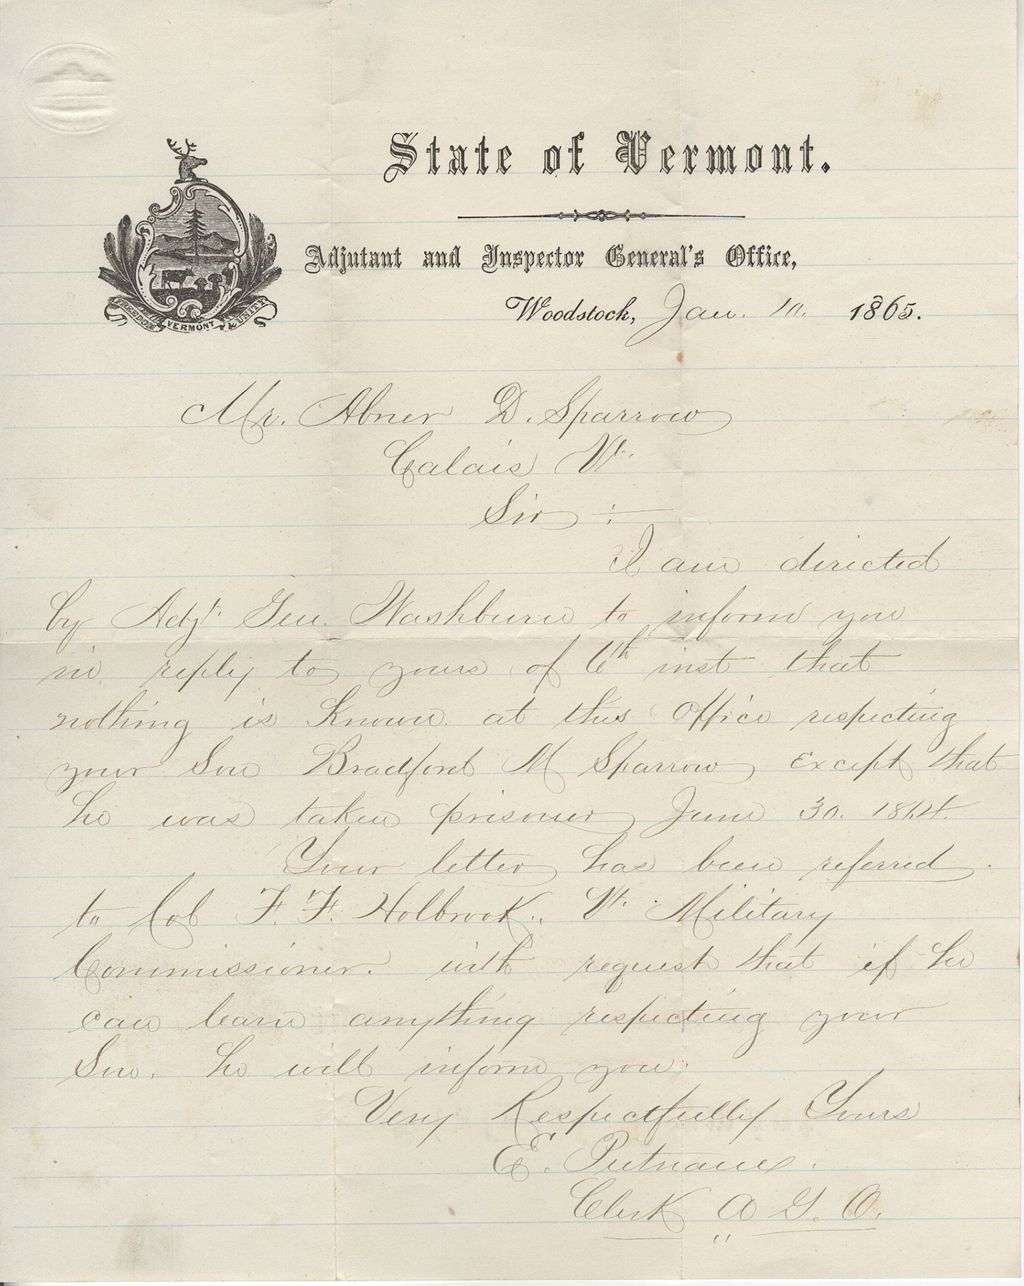 State of Vermont.
Adjutant and Inspector General's Office,
Woodstock, Jan. 10. 1865.
FREEDOM & UNITY
VERMONT
Mr. Abner D. Sparrow
Calais Vt.
Sir :
I am directed
by Adjt. Gen. Washburn to inform you
in reply to yours of 6th inst that
nothing is known at this Office respecting
your Son Bradford M Sparrow except that
he was taken prisoner June 30. 1864.
Your letter has been referred
to Col F. F. Holbrook, Vt. Military
Commissioner. with request that if he
can learn anything respecting your
Son. he will inform you.
Very Respectfully Yours
E. Putnam.
Clerk A. G. O.